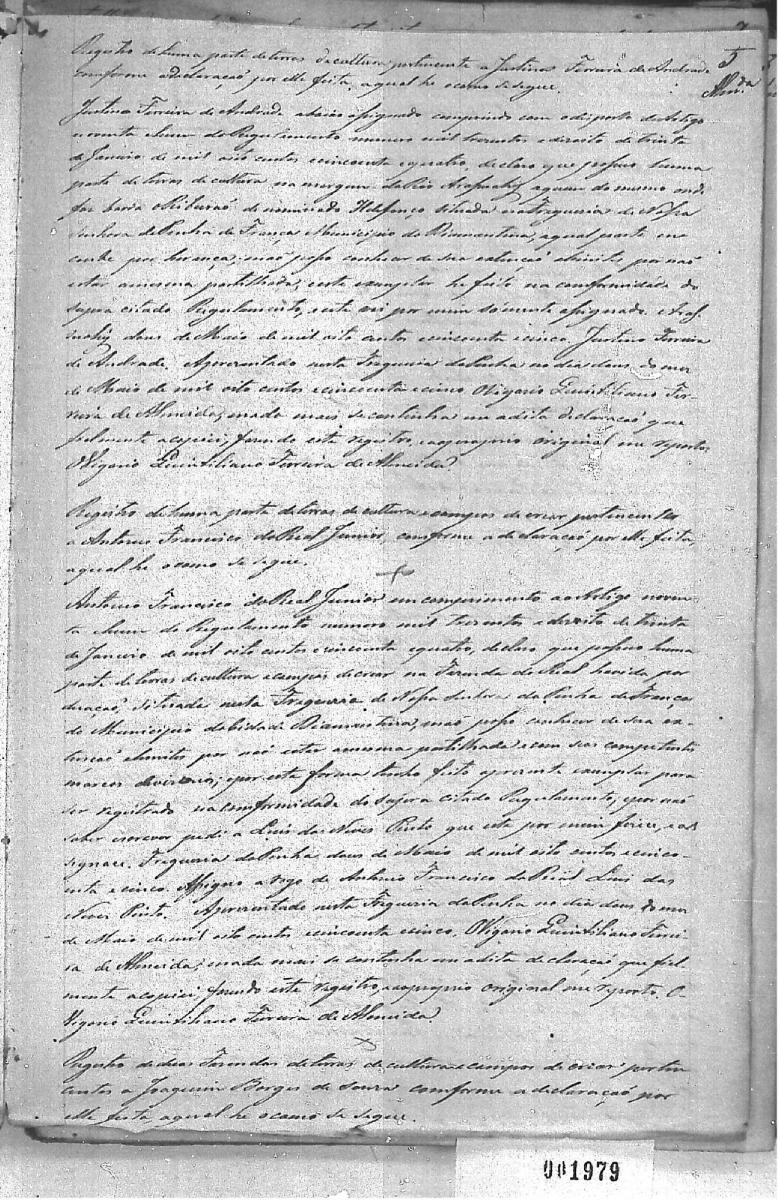 5
Alm.da
Registro de huma parte de terras de cultura pertencente a Justino Ferreira de Andrade
comforme a declaração por elle feita, a qual he o como se segue.
Justino Ferreira de Andrade abaixo assignado comprindo com o disposto do Artigo
noventa e hum do Regulamento numero mil trezentos e dezoito de trinta
de Janeiro de mil oito centos e cincoenta e quatro, declaro que possuo huma
parte de terras de cultura na margem do Rio Arassuahy, aquem do mesmo onde
faz barra o Ribeirão denominado Ilefonço situada na Freguesia de Nossa
Senhora da Penha de França Municipio de Diamantina, a qual parte me
coube por herança; não posso conhecer de sua extenção e limites, por não
estar a mesma partilhada; este exemplar he feito na comformidade do
supra citado Regulamento, e este vai por mim somente assignado. Aras-
suahy dous de Maio de mil oito centos e cincoenta e cinco. Justino Ferreira
de Andrade. Aprezentado nesta Freguesia da Penha no dia dous do mez
de Maio de mil oito centos e cincoenta e cinco. O Vigario Quintiliano Fer-
reira de Almeida; e nada mais se continha na dita declaração que
fielmente a copiei, fazendo este registro, e ao proprio original me reporto
O Vigario Quintiliano Ferreira de Almeida
Registro de huma parte de terras de cultura e campos de criar pertencentes
a Antonio Francisco do Real Junior, comforme a declaração por elle feita,
a qual he o como se segue.
Antonio Francisco do Real Junior em comprimento ao Artigo noven-
ta e hum do Regulamento numero mil trezentos e dezoito de trinta
de Janeiro de mil oito centos e cincoenta e quatro, declaro que possuo huma
parte de terras de cultura e campos de crear na Fazenda do Real havida por
doação situada nesta Freguesia de Nossa Senhora da Penha de França
do Municipio da Cidade Diamantina, não posso conhecer de sua ex-
tenção e limites por não estar a mesma partilhada e com seos competentes
marcos divizorios; e por esta forma tenho feito o prezente exemplar para
ser registrado na comformidade do supra citado Regulamento, e por não
saber escrever pedi a Luis das Neves Pinto que este por mim fizece, e as-
signace. Freguesia da Penha dous de Maio de mil oito centos e cinco-
enta e cinco. Assigno a rogo de Antonio Francisco do Real Luis das
Neves Pinto. Aprezentado nesta Freguesia da Penha no dia dous do mez
de Maio de mil oito centos e cincoenta e cinco. O Vigario Quintiliano Ferrei-
ra de Almeida; e nada mais se continha na dita declaração que fiel-
mente a copiei, fazendo este registro, e ao proprio original me reporto. O
Vigario Quintiliano Ferreira de Almeida.
Registro de duas Fazendas de terras de cultura e campos de criar perten-
centes a Joaquim Borges de Souza comforme a declaração por
elle feita, a qual he o como se segue.
001979